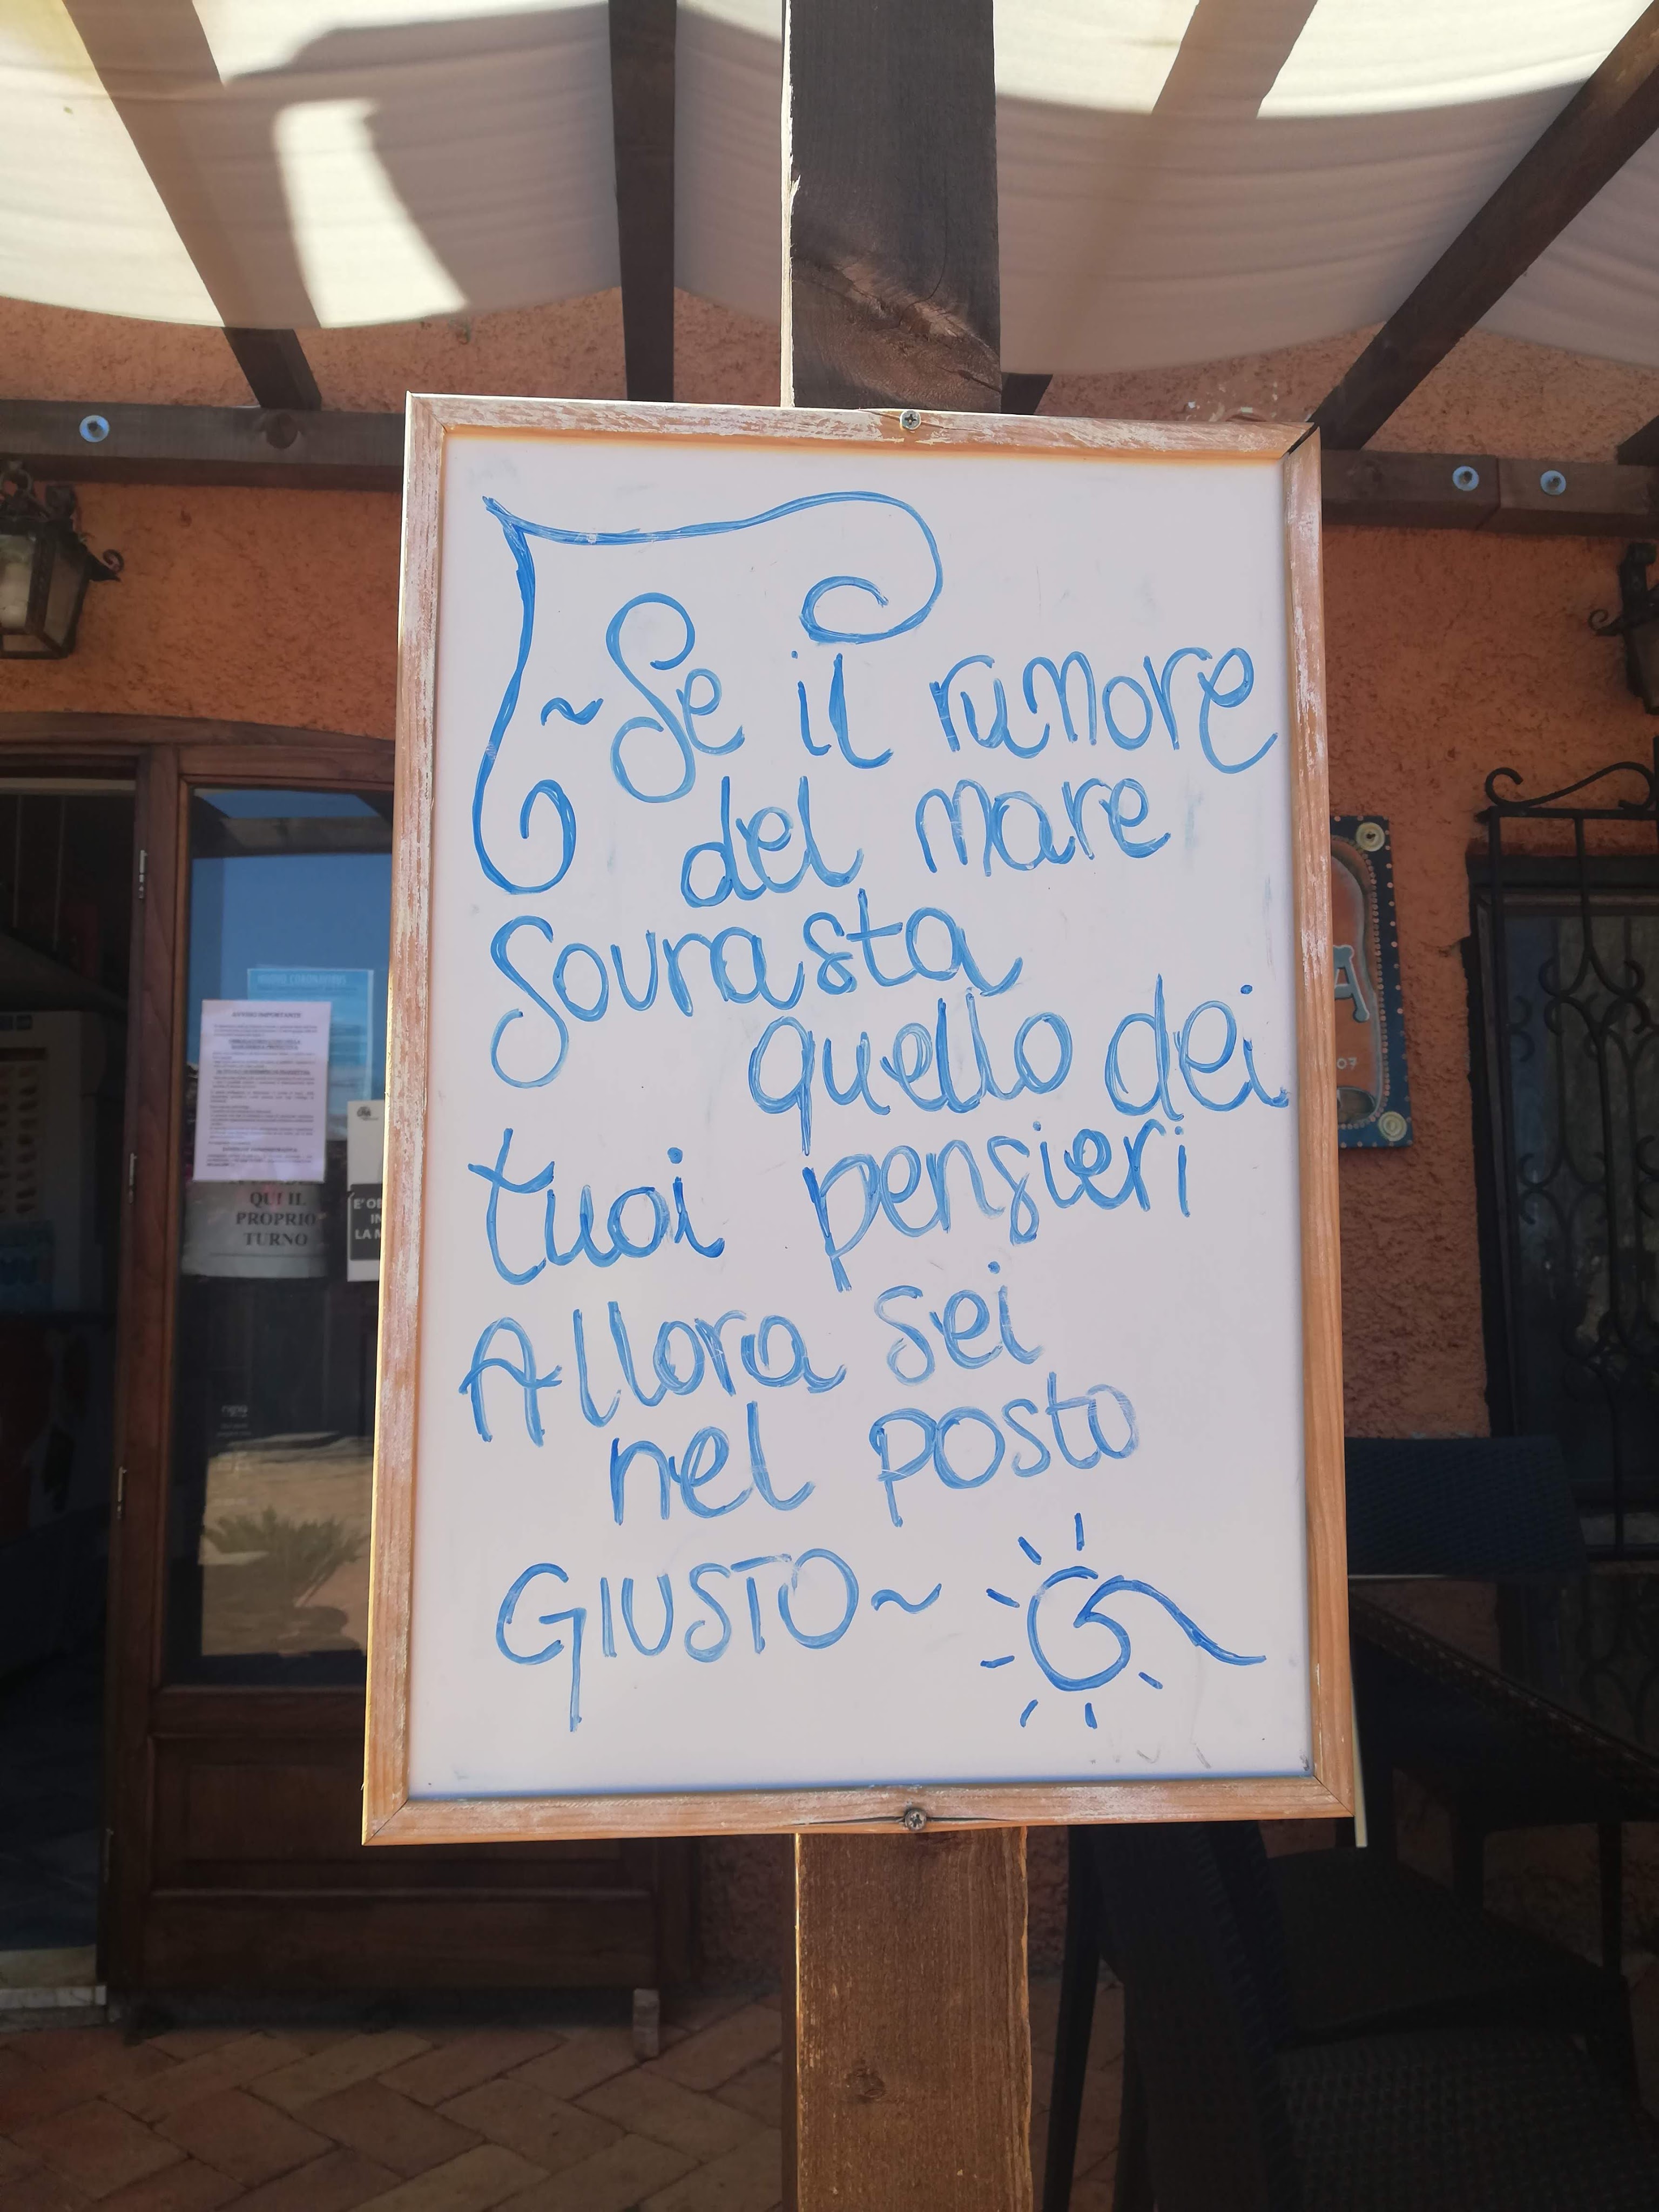 ~Se il rumore
del mare
sovrasta
quello dei
tuoi pensieri
Allora sei
nel posto
GIUSTO~
AVVISO IMPORTANTE
QUI IL
PROPRIO
TURNO
E' OB
IN
LA M
A
07